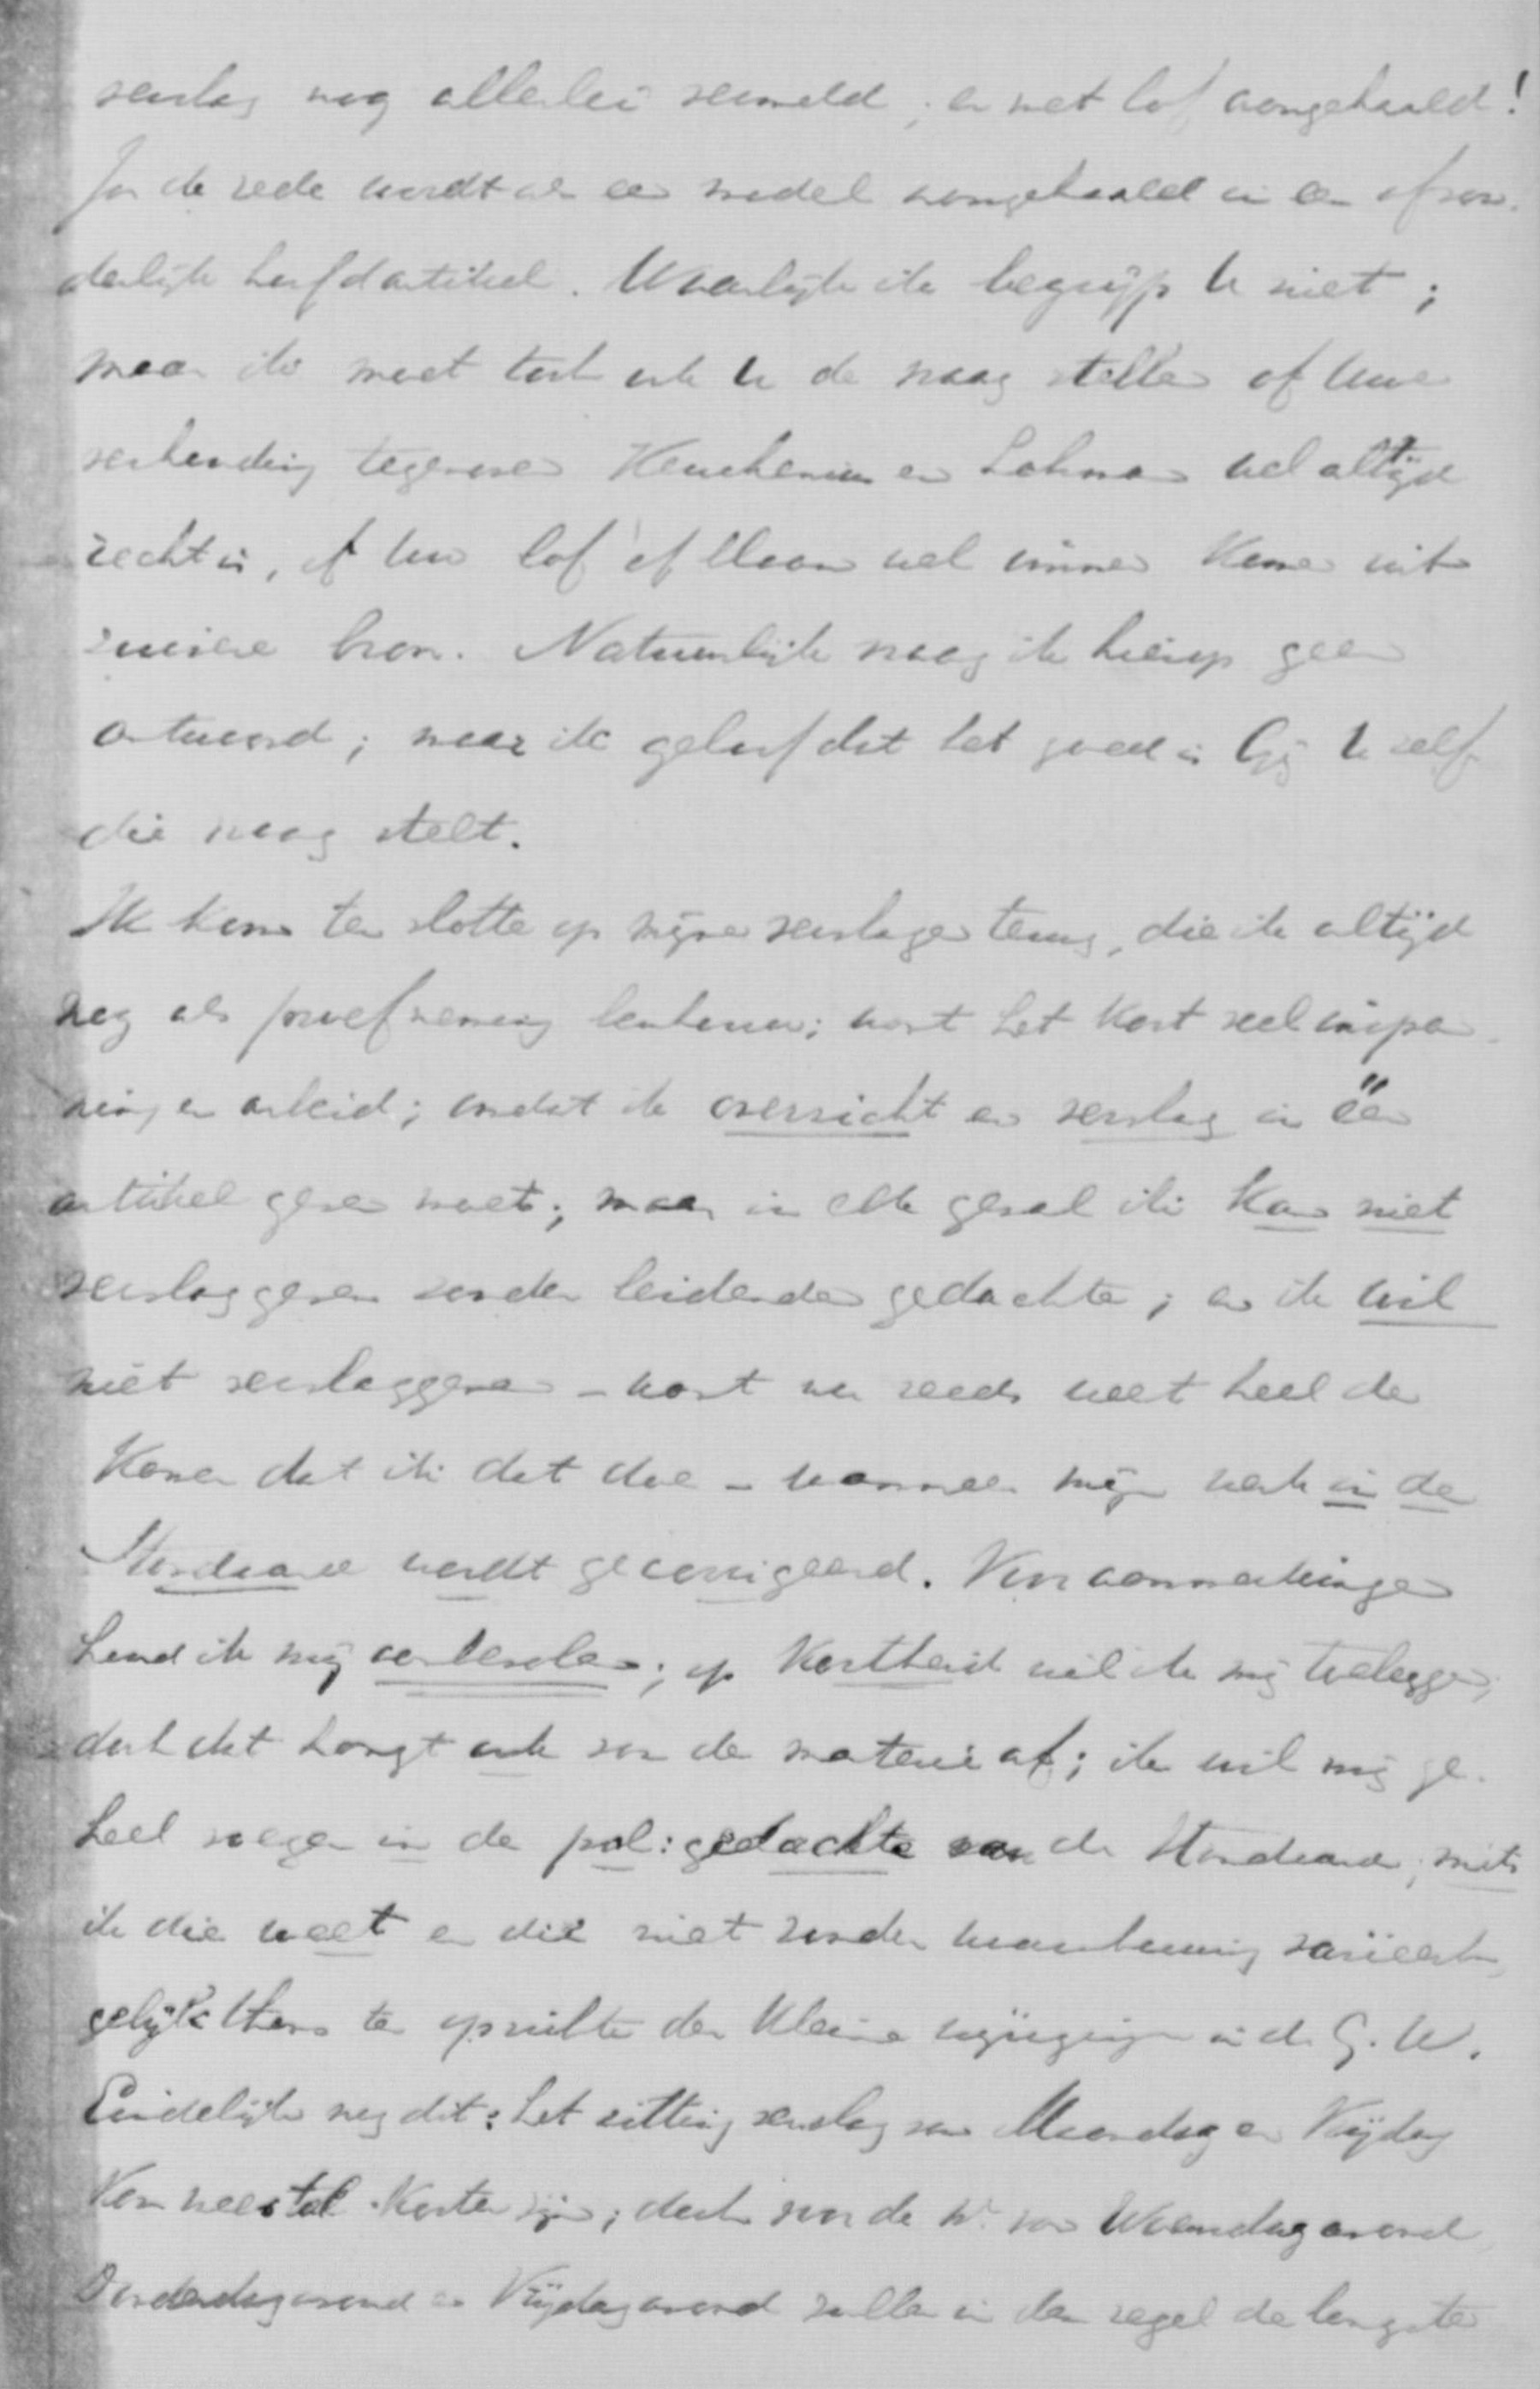 verslag nog allerlei vermeld, en met lof aangehaald!
Ja de rede wordt als een model aangehaald in een afzon-
derlijk hoofdartikel. Waarlijk ik begrijp U niet;
maar ik moet toch ook U de vraag stellen of Uwe
verhouding tegenover Keuchenius en Lohman wel altijd
recht is, of Uw lof of blaam wel immer komen uit
zuivere bron. Natuurlijk vraag ik hierop geen
antwoord; maar ik geloof dat het goed is Gij U zelf
die vraag stelt.
Ik kom ten slotte op mijne verslagen terug, die ik altijd
nog als proefneming beschouw; want het kost veel inspan-
ning en arbeid; omdat ik overzicht en verslag in één
artikel geven moet; maar in elk geval ik kan niet
verslag geven zonder leidende gedachte; en ik wil
niet verslaggeven – want nu reeds weet heel de
Kamer dat ik dat doe – wanneer mijn werk in de
Standaard wordt gecorrigeerd. Voor aanmerkingen
houd ik mij aanbevolen; op kortheid wil ik mij toeleggen;
doch dat hangt ook van de materie af; ik wil mij ge-
heel voegen in de pol: gedachte van de Standaard, mits
ik die weet en die niet zonder waarschuwing varieert,
gelijk thans ten opzichte der kleine wijzigingen in de G.W.
Eindelijk nog dit: het zitting verslag van Maandag en Vrijdag
kan meestal korter zijn; doch voor de nrs. van Woensdagavond
Donderdagavond en Vrijdagavond zullen in den regel de langste